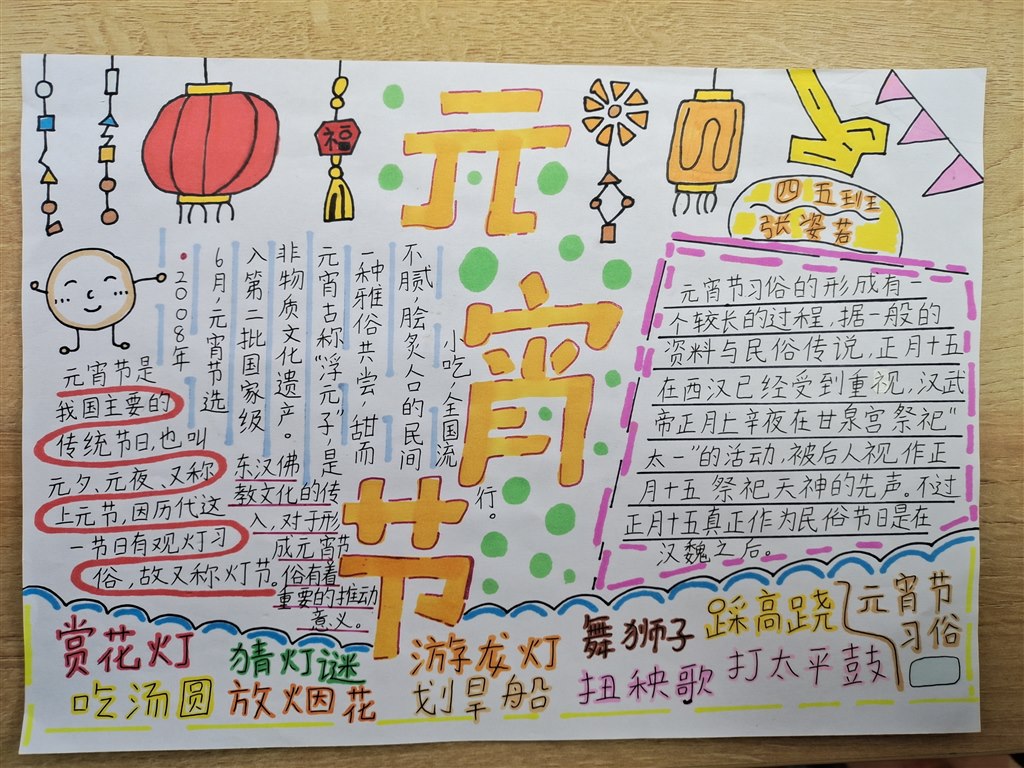 元宵节
福
四五班
张姿若
2008年
6月,元宵节选
入第二批国家级
非物质文化遗产。
元宵古称“浮元子”,是
一种雅俗共尝 甜而
不贰,脍炙人口的民间
小吃,全国流
行。
元宵节是
我国主要的
传统节日,也叫
元夕、元夜、又称
上元节,因历代这
一节日有观灯习
俗,故又称灯节。
东汉佛
教文化的传
入,对于形
成元宵节
俗有着
重要的推动
意义。
元宵节习俗的形成有一
个较长的过程,据一般的
资料与民俗传说,正月十五
在西汉已经受到重视,汉武
帝正月上辛夜在甘泉宫祭祀“
太一”的活动,被后人视作正
月十五祭祀天神的先声。不过
正月十五真正作为民俗节日是在
汉魏之后。
元宵节
习俗
赏花灯
猜灯谜
游龙灯
舞狮子
踩高跷
吃汤圆
放烟花
划旱船
扭秧歌
打太平鼓